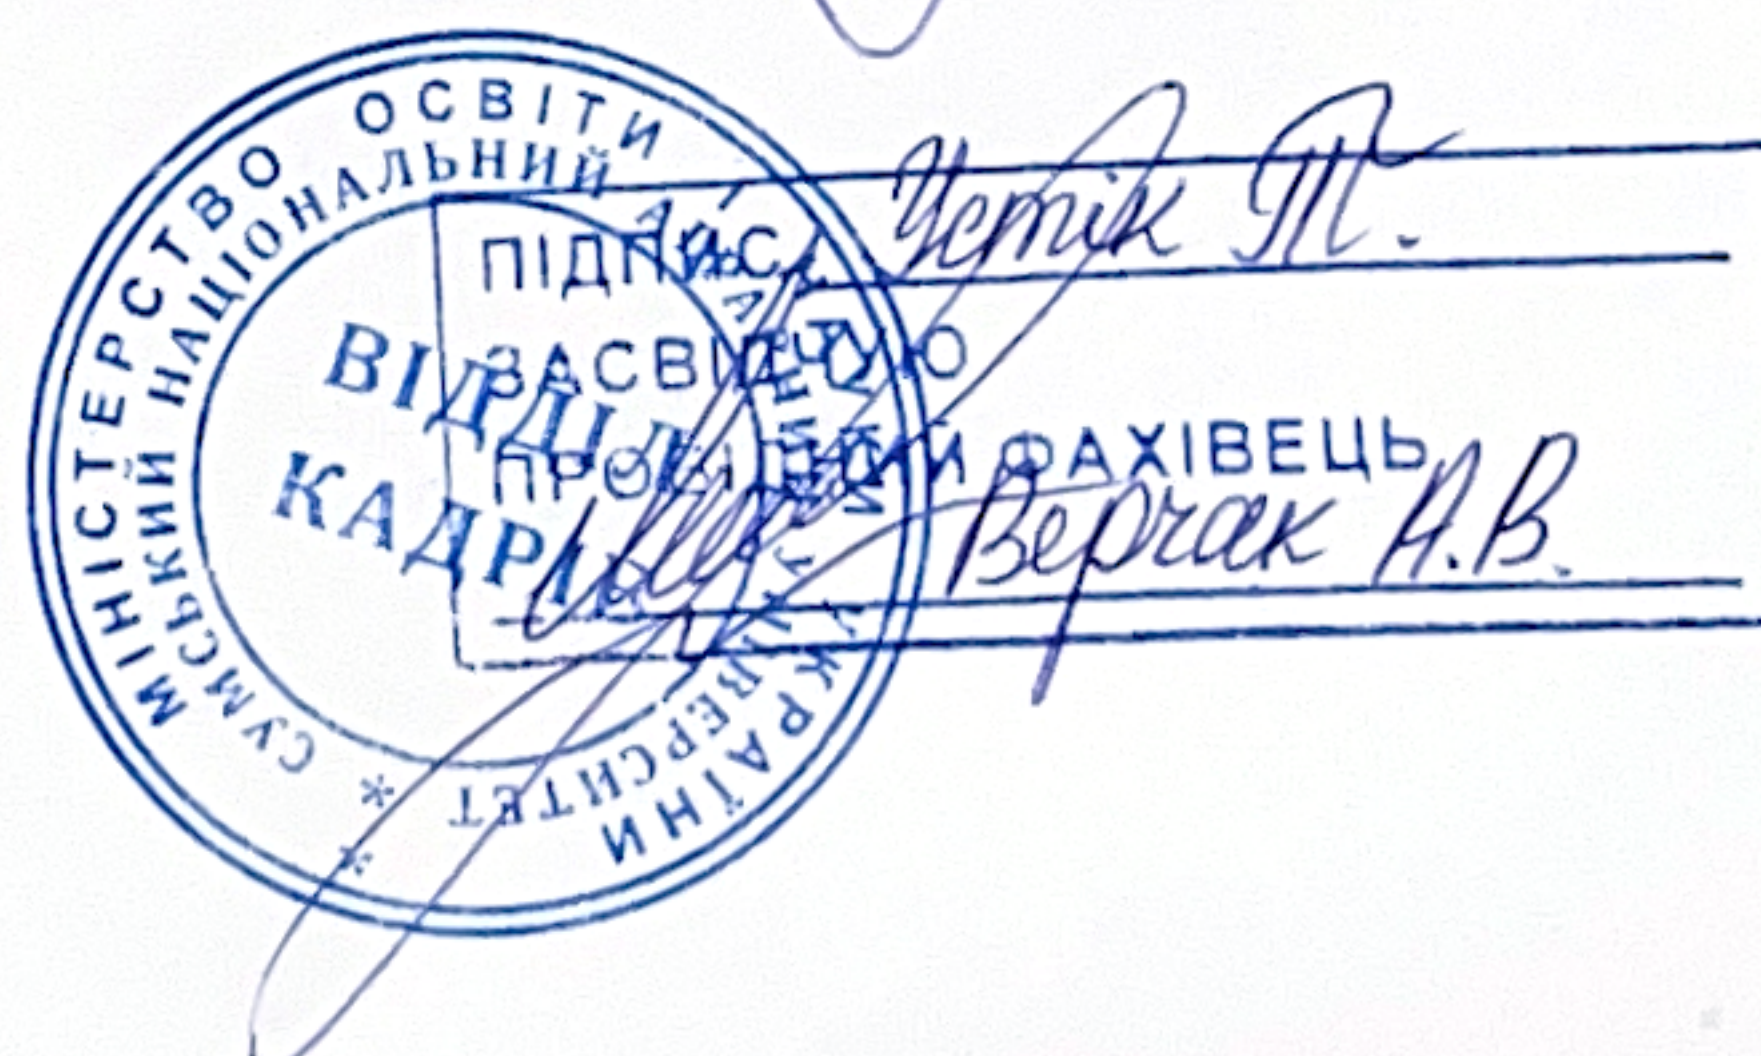 МІНІСТЕРСТВО ОСВІТИ І НАУКИ УКРАЇНИ
СУМСЬКИЙ НАЦІОНАЛЬНИЙ АГРАРНИЙ УНІВЕРСИТЕТ
* *
ВІДДІЛ
КАДРІВ
ПІДПИС Устік Т.
ЗАСВІДЧУЮ
ПРОВІДНИЙ ФАХІВЕЦЬ
Верчак А.В.